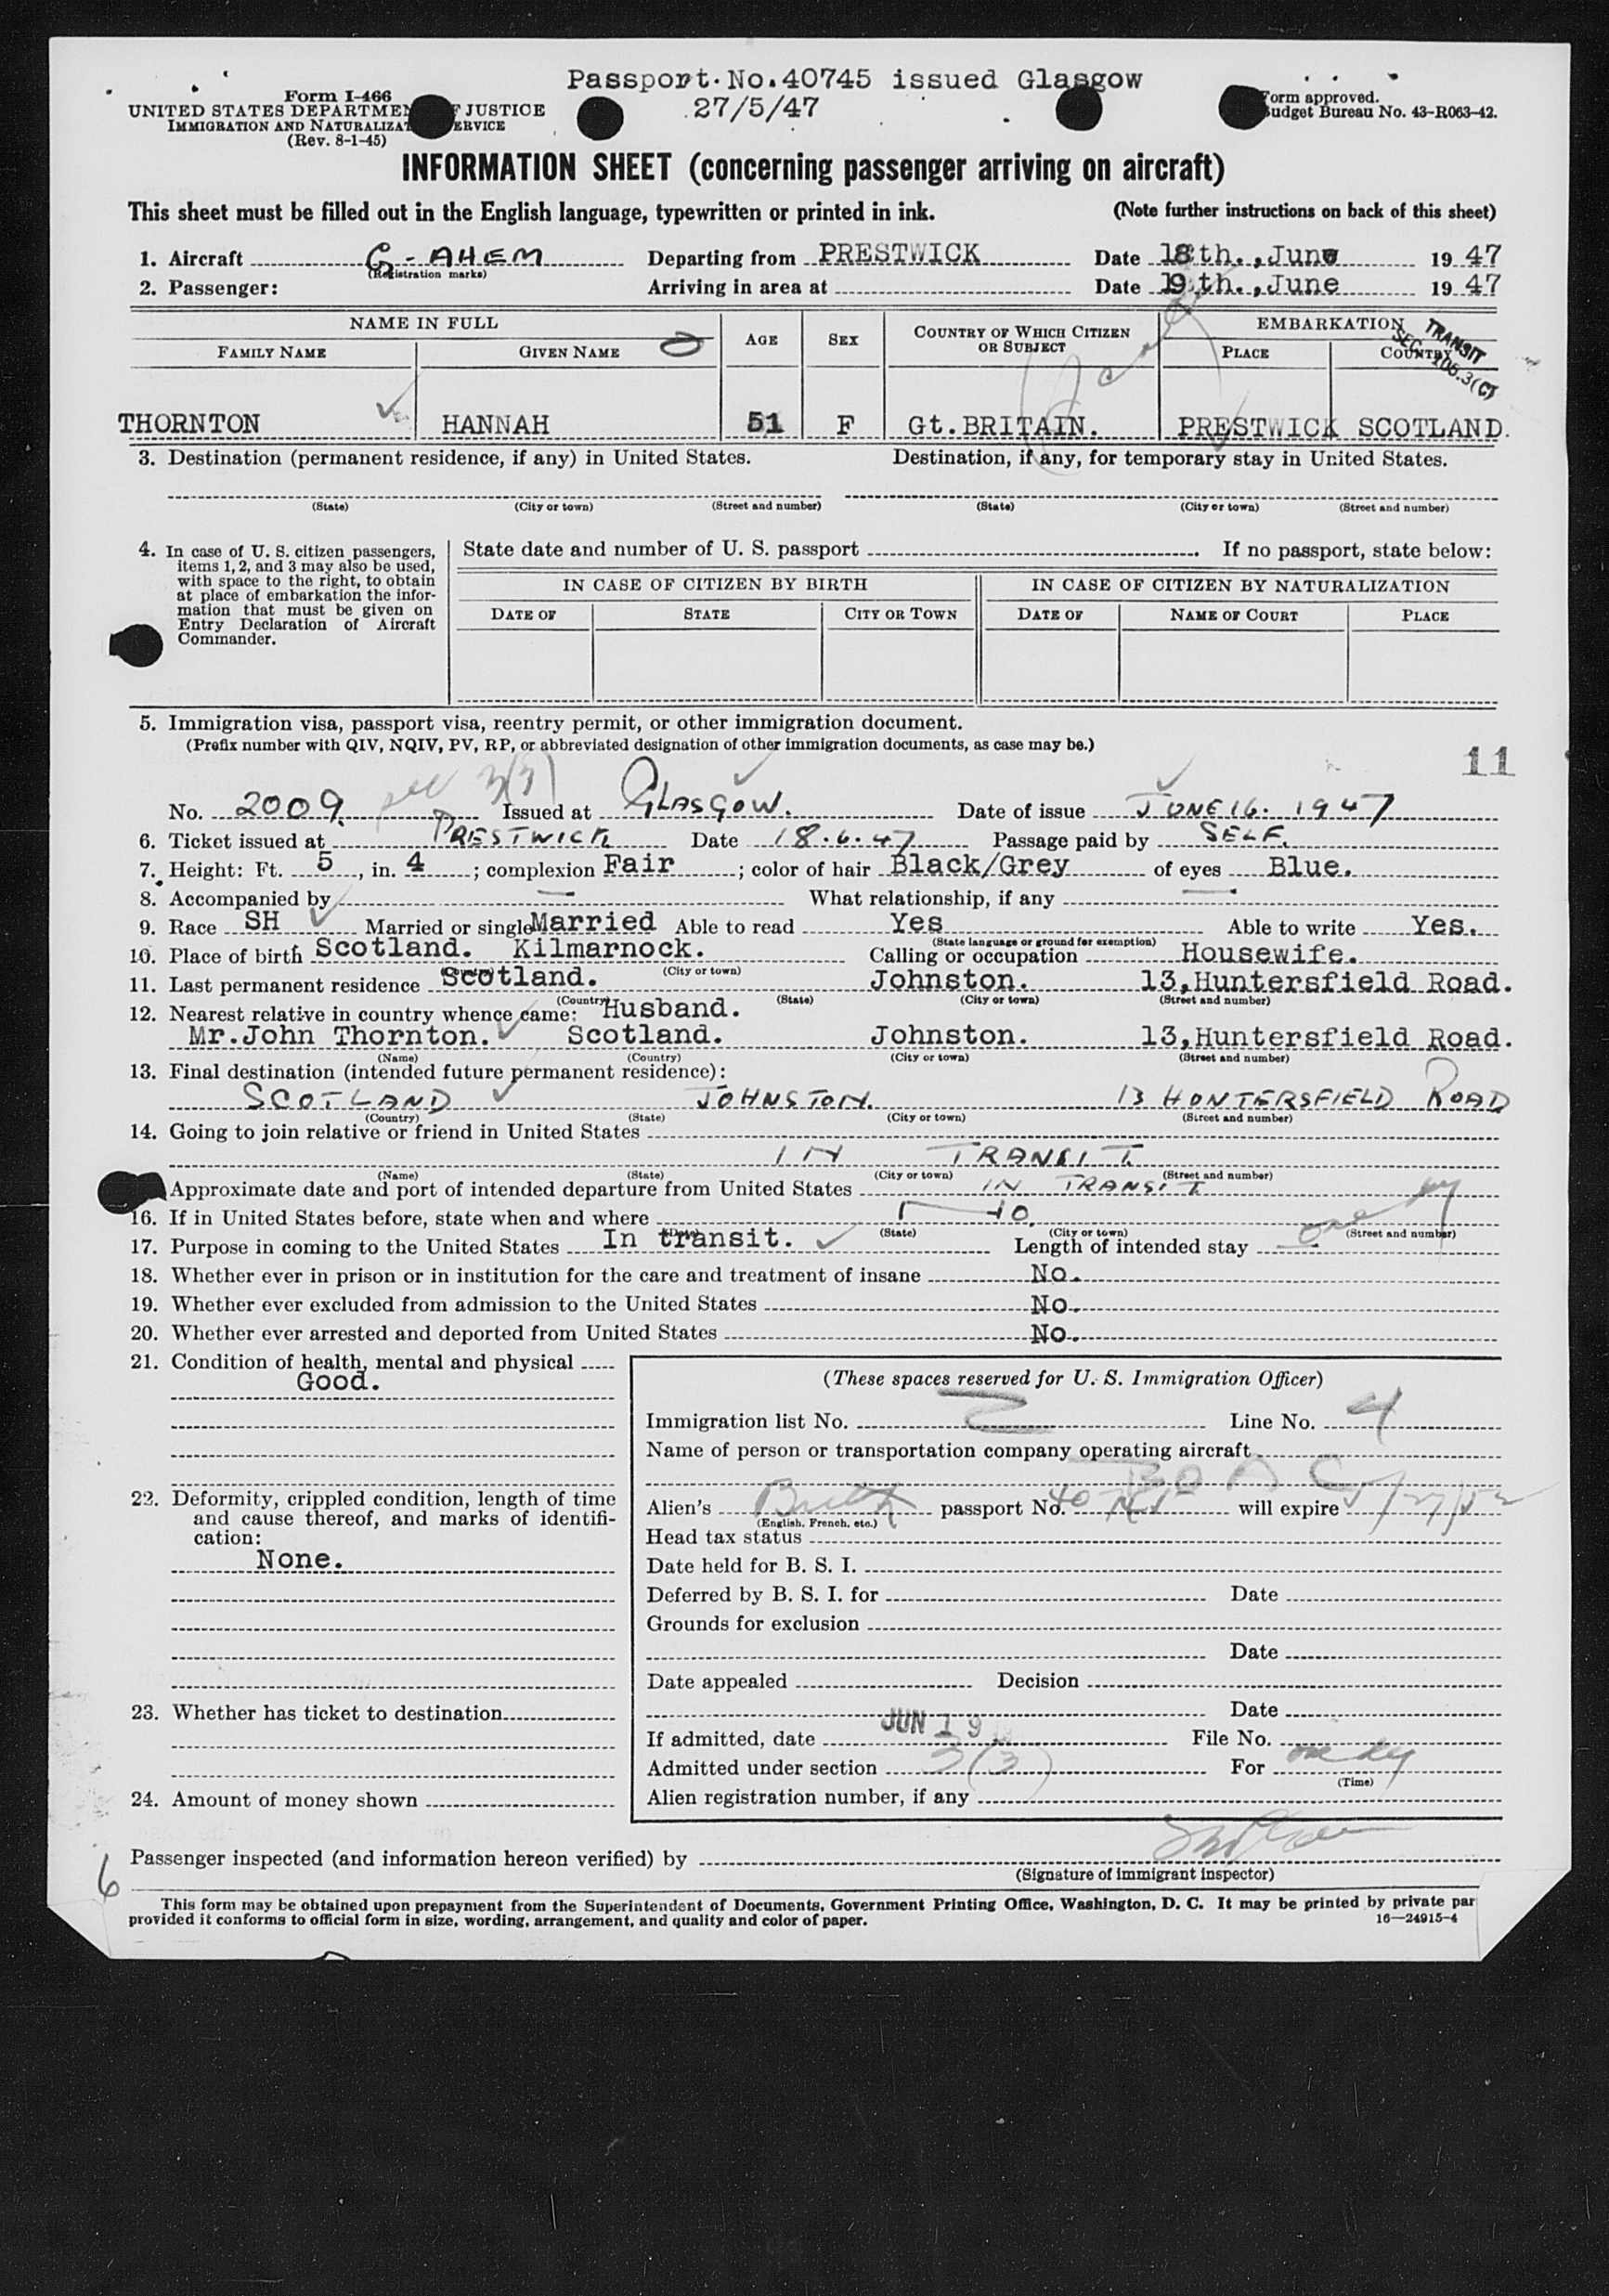 Passport.No.40745 issued Glasgow
27/5/47
Form I-466
UNITED STATES DEPARTMENT OF JUSTICE
IMMIGRATION AND NATURALIZATION SERVICE
(Rev. 8-1-45)
Form approved.
Budget Bureau No. 43-R063-42.
INFORMATION SHEET (concerning passenger arriving on aircraft)
This sheet must be filled out in the English language, typewritten or printed in ink. (Note further instructions on back of this sheet)
1. Aircraft G-AHEM Departing from PRESTWICK Date 18th.,June 1947
(Registration marks)
2. Passenger: Arriving in area at Date 19th.,June 1947
NAME IN FULL AGE SEX COUNTRY OF WHICH CITIZEN OR SUBJECT EMBARKATION
FAMILY NAME GIVEN NAME PLACE COUNTRY
TRANSIT
SEC. 106.3(C)
THORNTON HANNAH 51 F Gt.BRITAIN. PRESTWICK SCOTLAND.
3. Destination (permanent residence, if any) in United States. Destination, if any, for temporary stay in United States.
(State) (City or town) (Street and number) (State) (City or town) (Street and number)
4. In case of U. S. citizen passengers,
items 1, 2, and 3 may also be used,
with space to the right, to obtain
at place of embarkation the infor-
mation that must be given on
Entry Declaration of Aircraft
Commander.
State date and number of U. S. passport . If no passport, state below:
IN CASE OF CITIZEN BY BIRTH IN CASE OF CITIZEN BY NATURALIZATION
DATE OF STATE CITY OR TOWN DATE OF NAME OF COURT PLACE
5. Immigration visa, passport visa, reentry permit, or other immigration document.
(Prefix number with QIV, NQIV, PV, RP, or abbreviated designation of other immigration documents, as case may be.)
11
3(3)
No. 2009. Issued at GLASGOW. Date of issue JUNE 16. 1947
6. Ticket issued at PRESTWICK Date 18.6.47 Passage paid by SELF.
7. Height: Ft. 5, in. 4; complexion Fair; color of hair Black/Grey of eyes Blue.
8. Accompanied by — What relationship, if any —
9. Race SH Married or single Married Able to read Yes Able to write Yes.
(State language or ground for exemption)
10. Place of birth Scotland. Kilmarnock. Calling or occupation Housewife.
(Country) (City or town)
11. Last permanent residence Scotland. Johnston. 13,Huntersfield Road.
(Country) (State) (City or town) (Street and number)
12. Nearest relative in country whence came: Husband.
Mr.John Thornton. Scotland. Johnston. 13,Huntersfield Road.
(Name) (Country) (City or town) (Street and number)
13. Final destination (intended future permanent residence):
SCOTLAND JOHNSTON. 13 HUNTERSFIELD ROAD
(Country) (State) (City or town) (Street and number)
14. Going to join relative or friend in United States
IN TRANSIT.
(Name) (State) (City or town) (Street and number)
Approximate date and port of intended departure from United States IN TRANSIT
16. If in United States before, state when and where NO.
(Date) (State) (City or town) (Street and number)
17. Purpose in coming to the United States In transit. Length of intended stay one dy
18. Whether ever in prison or in institution for the care and treatment of insane No.
19. Whether ever excluded from admission to the United States No.
20. Whether ever arrested and deported from United States No.
21. Condition of health, mental and physical
Good.
22. Deformity, crippled condition, length of time
and cause thereof, and marks of identifi-
cation:
None.
23. Whether has ticket to destination
24. Amount of money shown
(These spaces reserved for U. S. Immigration Officer)
Immigration list No. 2 Line No. 4
Name of person or transportation company operating aircraft
BOAC
Alien's British passport No. 40745 will expire 5/27/52
(English, French, etc.)
Head tax status
Date held for B. S. I.
Deferred by B. S. I. for Date
Grounds for exclusion
Date
Date appealed Decision
Date
If admitted, date JUN 19 File No.
Admitted under section 3(3) For one dy
(Time)
Alien registration number, if any
Passenger inspected (and information hereon verified) by
(Signature of immigrant inspector)
6
This form may be obtained upon prepayment from the Superintendent of Documents, Government Printing Office, Washington, D. C. It may be printed by private par
provided it conforms to official form in size, wording, arrangement, and quality and color of paper. 16—24915-4